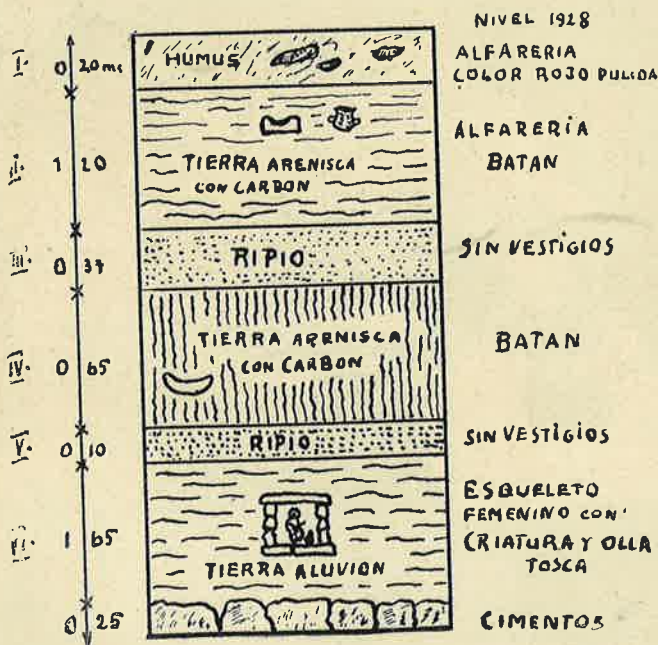 NIVEL 1928
I. 0 20 ms HUMUS ALFARERIA
COLOR ROJO PULIDA
II. 1 20 TIERRA ARENISCA
CON CARBON
ALFARERÍA
BATAN
III. 0 37 RIPIO SIN VESTIGIOS
IV. 0 65 TIERRA ARENISCA
CON CARBON
BATAN
V. 0 10 RIPIO SIN VESTIGIOS
VI. 1 65 TIERRA ALUVION
ESQUELETO
FEMENINO CON
CRIATURA Y OLLA
TOSCA
0 25 CIMENTOS